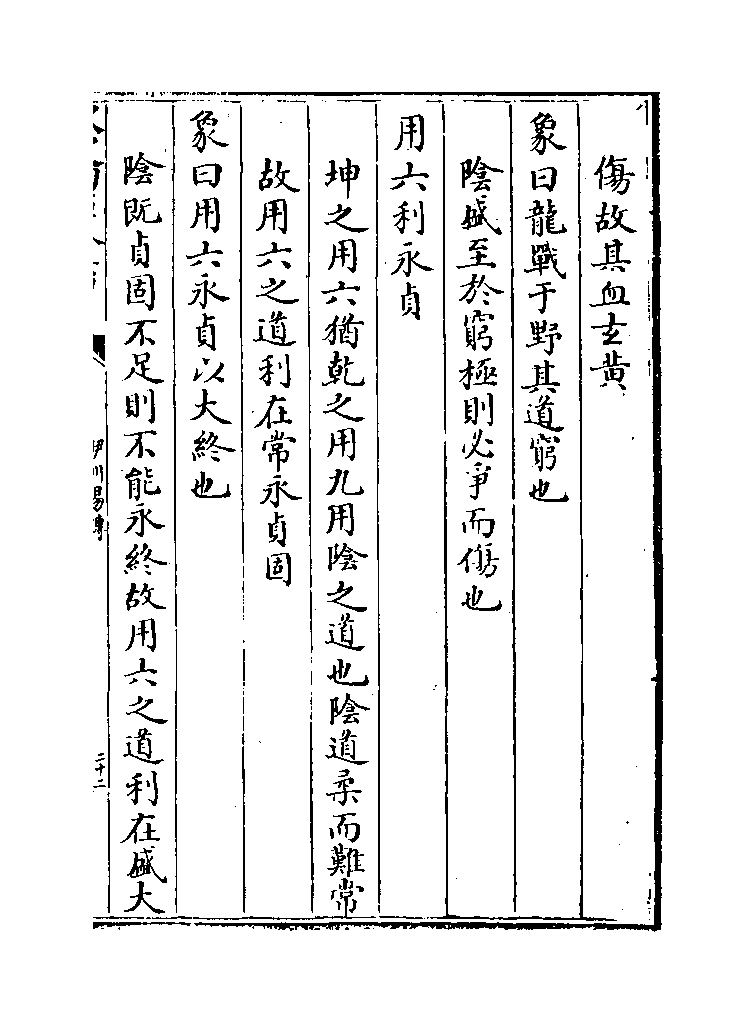 傷故其血玄黄
象曰龍戰于野其道窮也
陰盛至於窮極則必爭而傷也
用六利永貞
坤之用六猶乾之用九用陰之道也陰道柔而難常
故用六之道利在常永貞固
象曰用六永貞以大終也
陰既貞固不足則不能永終故用六之道利在盛大
伊川易傳
二十二